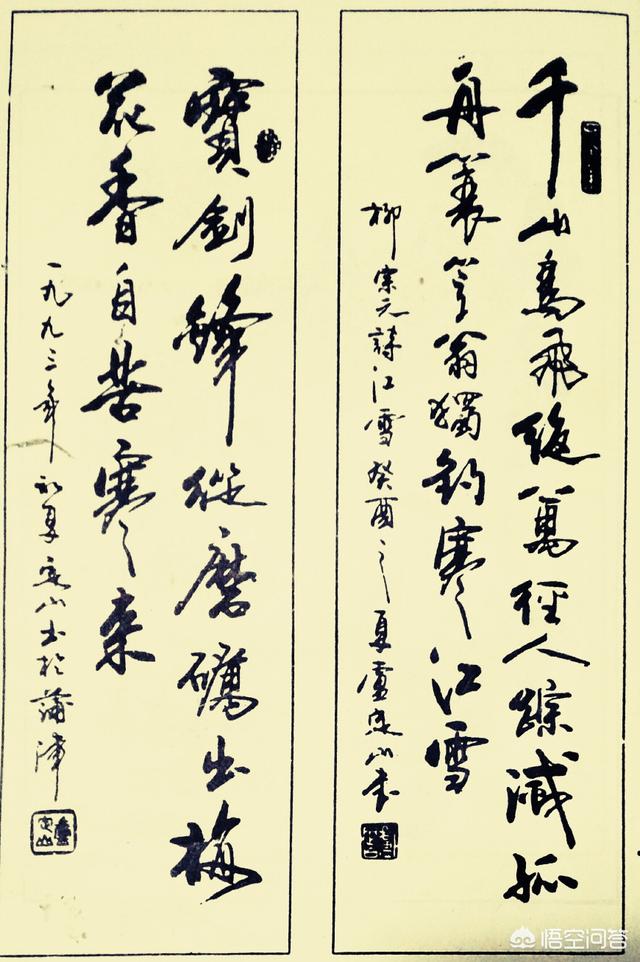 千山鳥飛絕萬徑人踪滅孤
舟簑笠翁獨釣寒江雪
柳宗元詩江雪癸酉之夏盧定山書
寶劍鋒從磨礪出梅
花香自苦寒来
一九九三年初夏定山书於蒲津
盧定山
悟空问答